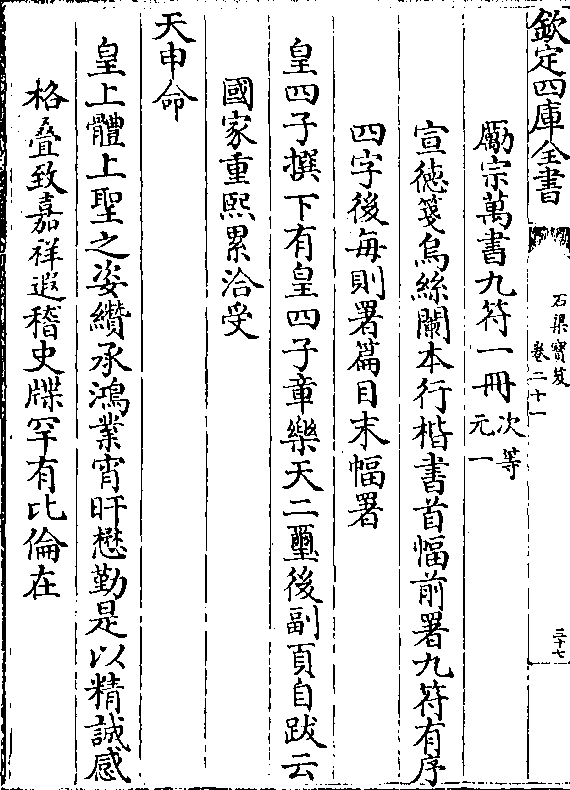 欽定四庫全書
石渠寶笈
卷二十一
三十七
勵宗萬書九符一冊次等元一
宣德箋烏絲闌本行楷書首幅前署九符有序
四字後每則署篇目末幅署
皇四子撰下有皇四子章樂天二璽後副頁自跋云
國家重熙累洽受
天申命
皇上體上聖之姿纘承鴻業宵旰懋勤是以精誠感
格疊致嘉祥遐稽史牒罕有比倫在